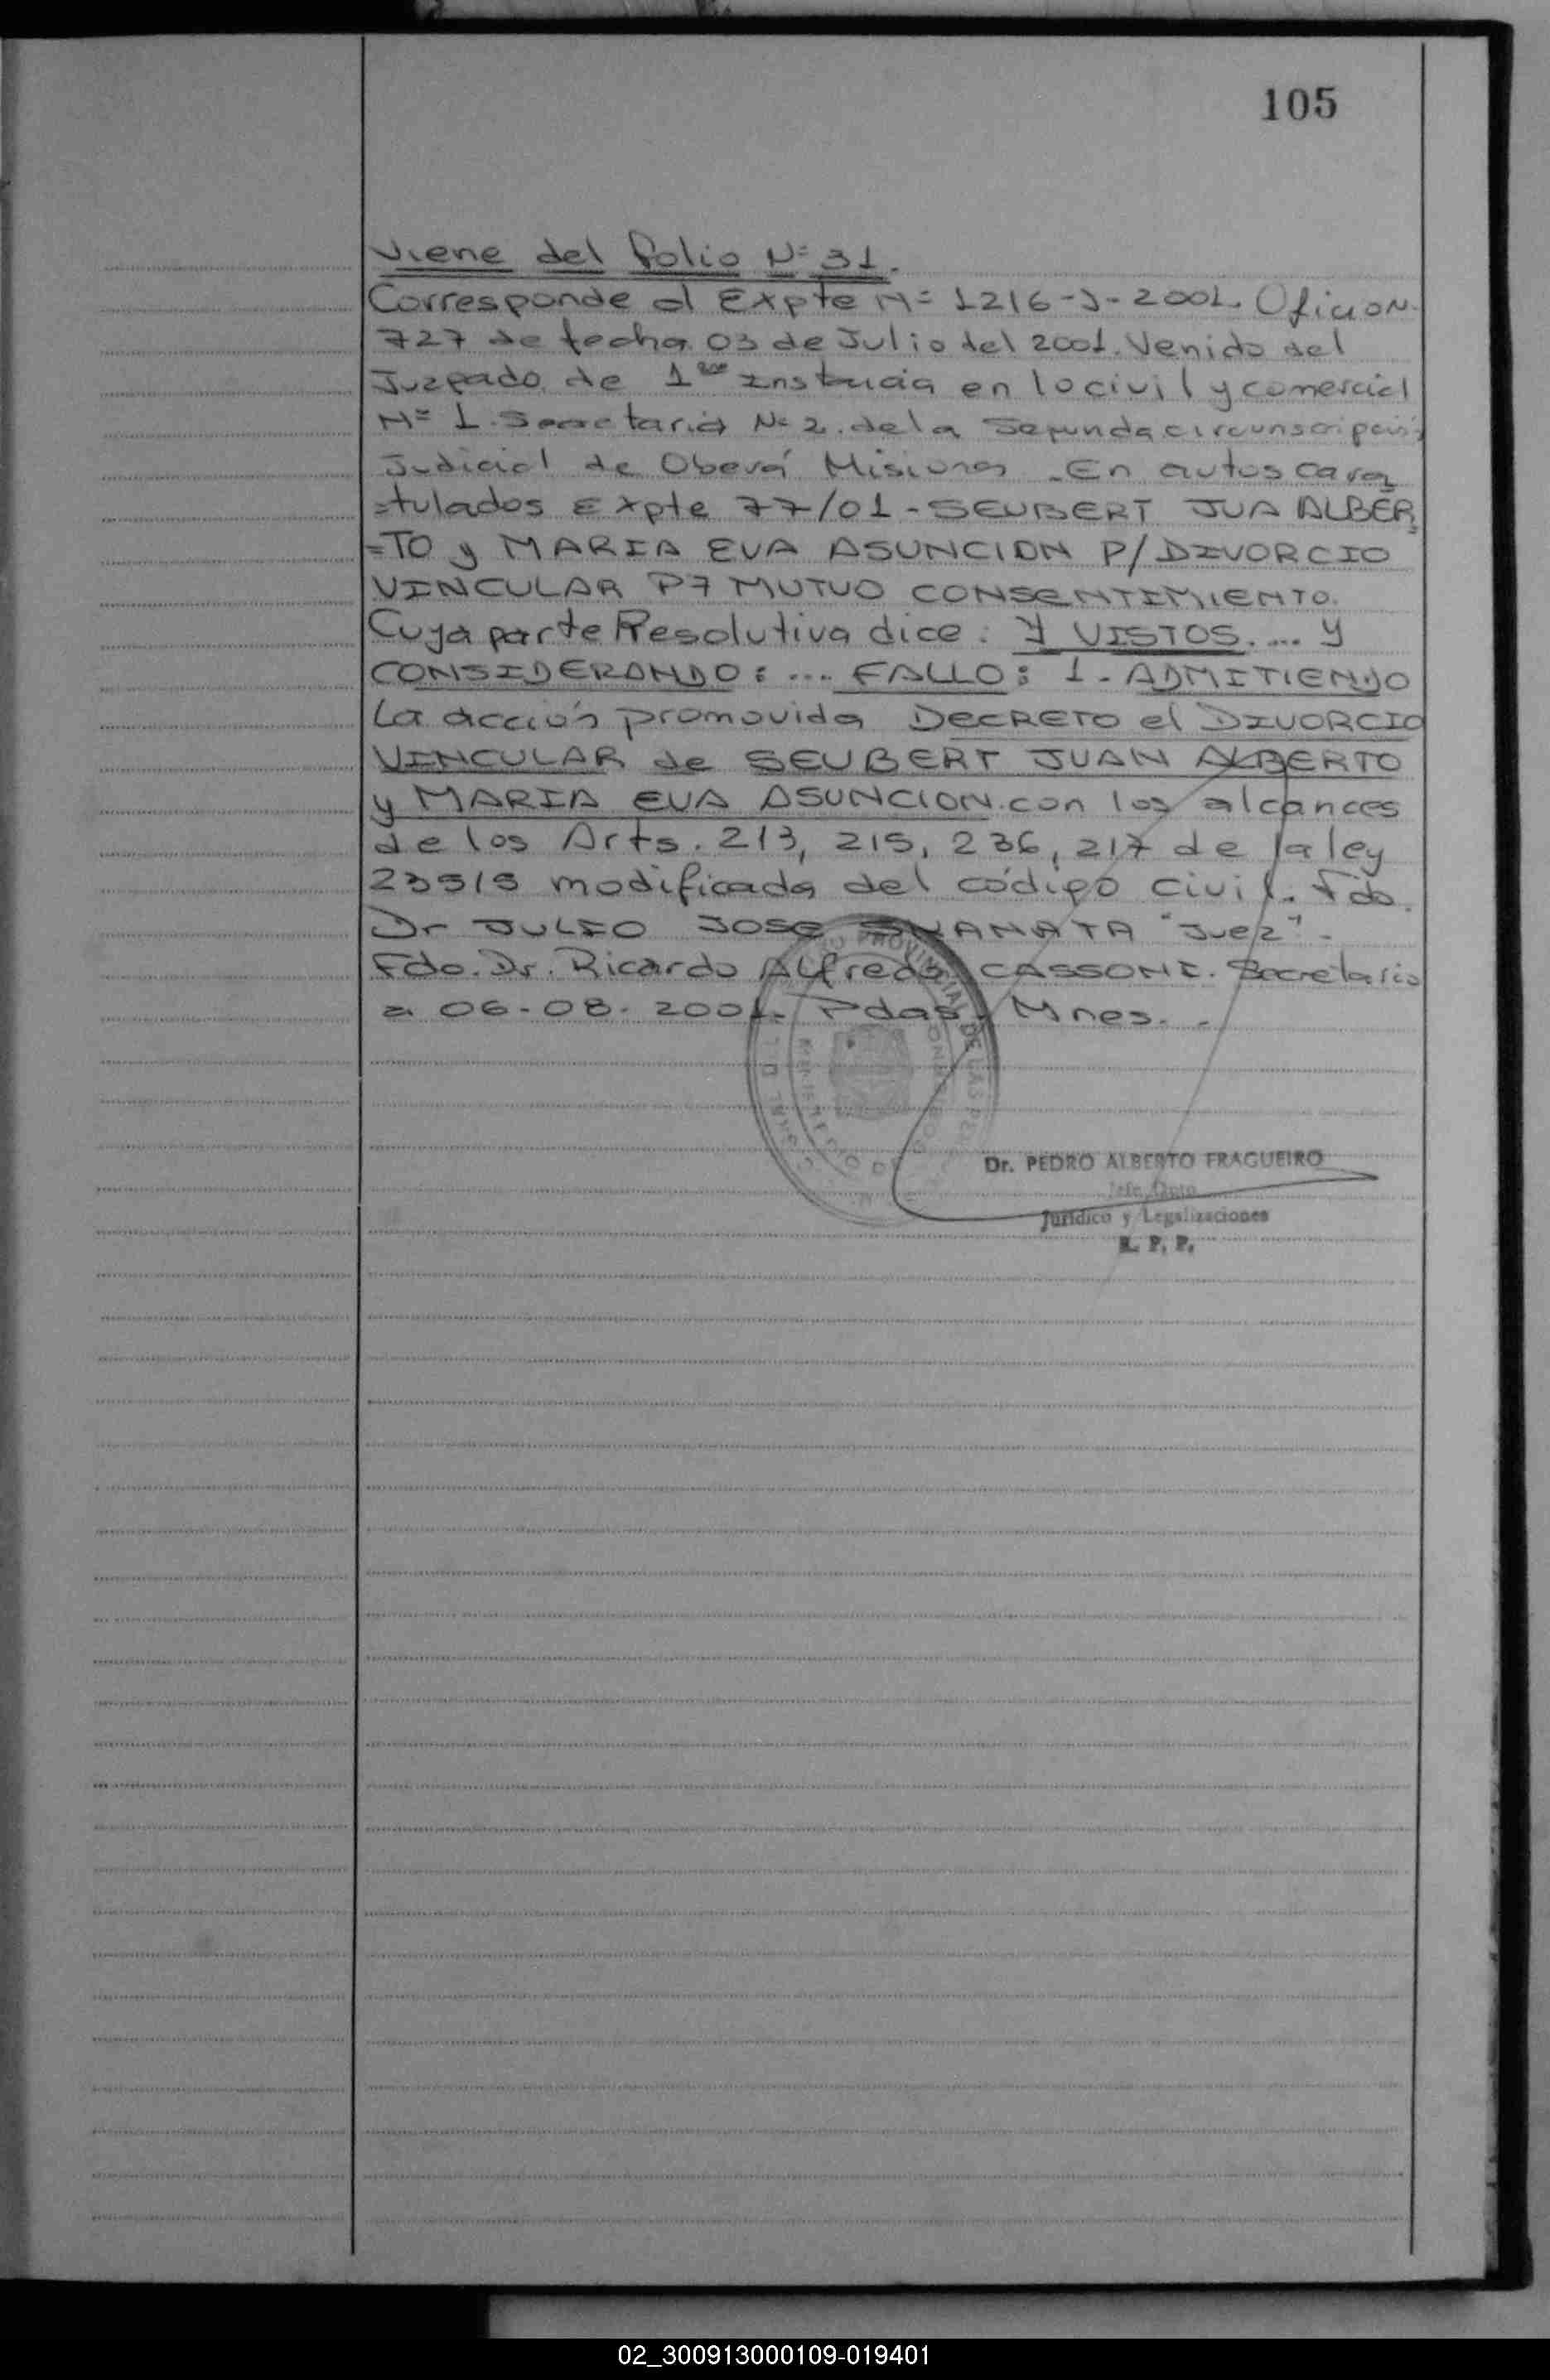 105
Viene del folio N= 31.
Corresponde al Expte N= 1216-J-2001. Oficio N.
727 de fecha 03 de Julio del 2001. Venido del
Juzgado de 1ra Instancia en lo civil y comercial
N= 1. Secretaria N= 2. de la Segunda circunscripció
Judicial de Oberá Misiones. En autos cara
=tulados Expte 77/01 - SEUBERT JUA ALBER
=TO y MARIA EVA ASUNCION P/ DIVORCIO
VINCULAR P7 MUTUO CONSENTIMIENTO.
Cuya parte Resolutiva dice: Y VISTOS.... y
CONSIDERANDO: ... FALLO: 1- ADMITIENDO
La acción promovida DECRETO el DIVORCIO
VINCULAR de SEUBERT JUAN ALBERTO
y MARIA EVA ASUNCION. con los alcances
de los Arts. 213, 215, 236, 217 de la ley
23515 modificada del código civil. Fdo.
Dr JULIO JOSE "Juez".
Fdo. Dr. Ricardo Alfredo CASSONI. Secretario
a 06-08-2001. Pdas Mnes. -
Dr. PEDRO ALBERTO FRAGUEIRO
Jefe Dpto
Jurídico y Legalizaciones
R. P. P.
02_300913000109-019401